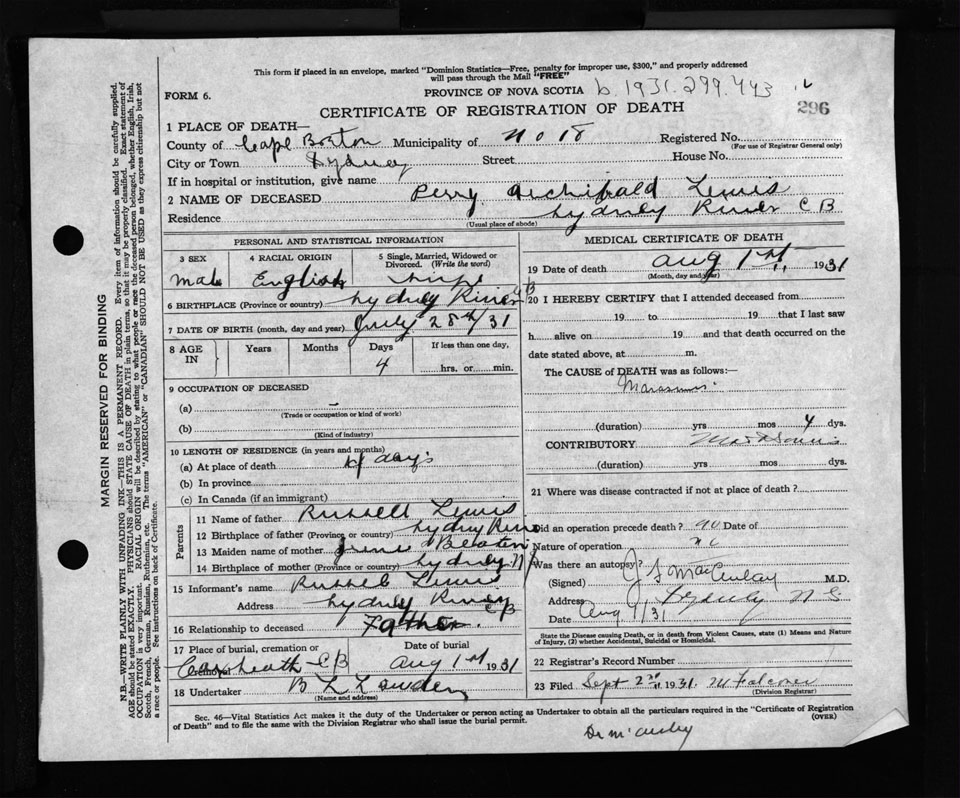 This form if placed in an envelope, marked "Dominion Statistics—Free, penalty for improper use, $300," and properly addressed
will pass through the Mail "FREE"
FORM 6.
PROVINCE OF NOVA SCOTIA b.1931.299.443
CERTIFICATE OF REGISTRATION OF DEATH
296
1 PLACE OF DEATH—
County of Cape Breton Municipality of No 18 Registered No.
(For use of Registrar General only)
City or Town Sydney Street House No.
If in hospital or institution, give name
2 NAME OF DECEASED Perry Archibald Lewis
Residence Sydney River C B
(Usual place of abode)
PERSONAL AND STATISTICAL INFORMATION
3 SEX
Male
4 RACIAL ORIGIN
English
5 Single, Married, Widowed or
Divorced. (Write the word)
6 BIRTHPLACE (Province or country) Sydney River CB
7 DATE OF BIRTH (month, day and year) July 28th/31
8 AGE IN
Years
Months
Days
4
If less than one day,
hrs. or min.
9 OCCUPATION OF DECEASED
(a) –
(Trade or occupation or kind of work)
(b)
(Kind of industry)
10 LENGTH OF RESIDENCE (in years and months)
(a) At place of death 4 days
(b) In province
(c) In Canada (if an immigrant)
Parents
11 Name of father Russell Lewis
12 Birthplace of father (Province or country) Sydney River
13 Maiden name of mother Beaton
14 Birthplace of mother (Province or country) Sydney
15 Informant's name Russell Lewis
Address Sydney River CB
16 Relationship to deceased Father.
17 Place of burial, cremation or
removal
Coxheath CB
Date of burial
Aug 1st 1931
18 Undertaker B L
(Name and address)
MEDICAL CERTIFICATE OF DEATH
19 Date of death Aug 1st, 1931
(Month, day and year)
20 I HEREBY CERTIFY that I attended deceased from
19 to 19 that I last saw
h alive on 19 and that death occurred on the
date stated above, at m.
The CAUSE of DEATH was as follows:—
Marasmus
(duration) yrs mos 4 dys.
CONTRIBUTORY
(duration) yrs mos dys.
21 Where was disease contracted if not at place of death?
Did an operation precede death? no Date of
Nature of operation
Was there an autopsy?
(Signed) M.D.
Address Sydney N S
Date Aug 1/31
State the Disease causing Death, or in death from Violent Causes, state (1) Means and Nature
of Injury, (2) whether Accidental, Suicidal or Homicidal.
22 Registrar's Record Number
23 Filed Sept 2nd 1931. M Falconer
(Division Registrar)
Sec. 46—Vital Statistics Act makes it the duty of the Undertaker or person acting as Undertaker to obtain all the particulars required in the "Certificate of Registration
of Death" and to file the same with the Division Registrar who shall issue the burial permit.
(OVER)
MARGIN RESERVED FOR BINDING
N.B.—WRITE PLAINLY WITH UNFADING INK—THIS IS A PERMANENT RECORD. Every item of information should be carefully supplied.
AGE should be stated EXACTLY. PHYSICIANS should STATE CAUSE OF DEATH in plain terms, so that it may be properly classified. Exact statement of
OCCUPATION is very important. RACIAL ORIGIN will be described by stating to what people or race the deceased person belonged, whether English, Irish,
Scotch, French, German, Russian, Ruthenian, etc. The terms "AMERICAN" or "CANADIAN" SHOULD NOT BE USED as they express citizenship but not
a race or people. See instructions on back of Certificate.